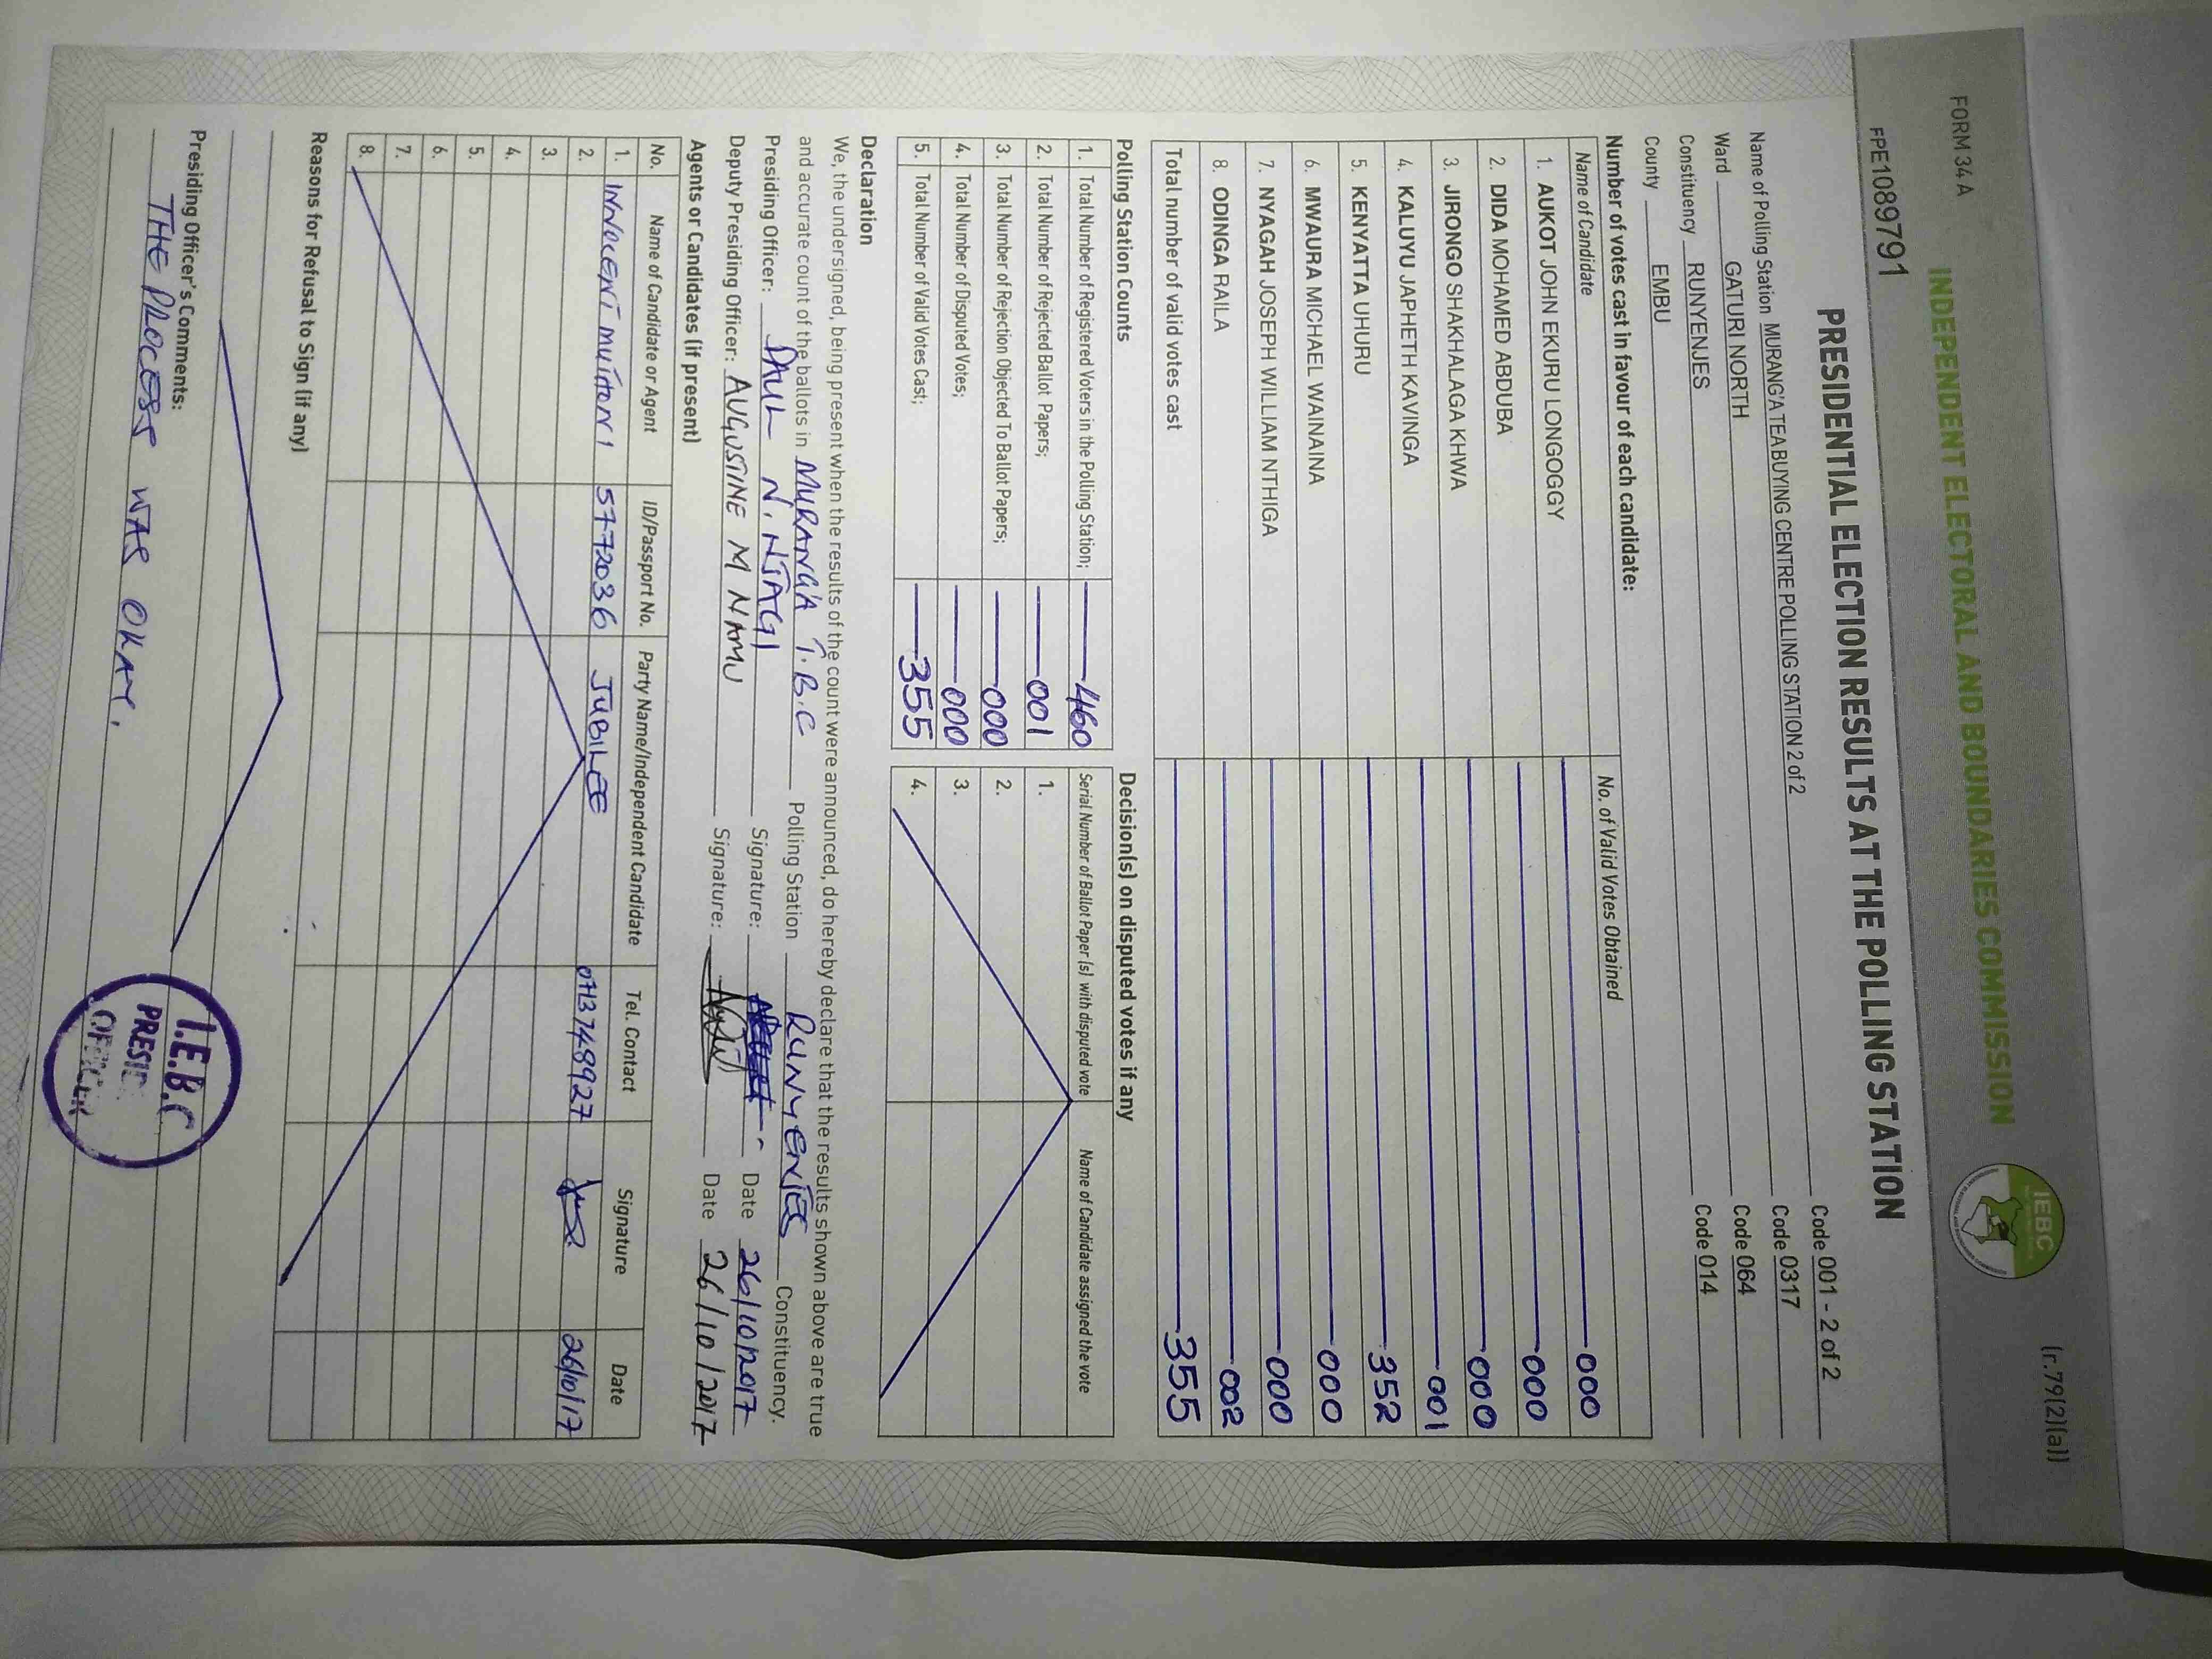 FORM 34A (r.79(2)(a))
INDEPENDENT ELECTORAL AND BOUNDARIES COMMISSION
IEBC
FPE1089791
PRESIDENTIAL ELECTION RESULTS AT THE POLLING STATION
Name of Polling Station MURANG'A TEA BUYING CENTRE POLLING STATION 2 of 2 Code 001 - 2 of 2
Ward GATURI NORTH Code 0317
Constituency RUNYENJES Code 064
County EMBU Code 014
Number of votes cast in favour of each candidate:
Name of Candidate No. of Valid Votes Obtained
1. AUKOT JOHN EKURU LONGOGGY 000
2. DIDA MOHAMED ABDUBA 000
3. JIRONGO SHAKHALAGA KHWA 000
4. KALUYU JAPHETH KAVINGA 001
5. KENYATTA UHURU 352
6. MWAURA MICHAEL WAINAINA 000
7. NYAGAH JOSEPH WILLIAM NTHIGA 000
8. ODINGA RAILA 002
Total number of valid votes cast 355
Polling Station Counts
1. Total Number of Registered Voters in the Polling Station; 460
2. Total Number of Rejected Ballot Papers; 001
3. Total Number of Rejection Objected To Ballot Papers; 000
4. Total Number of Disputed Votes; 000
5. Total Number of Valid Votes Cast; 355
Decision(s) on disputed votes if any
Serial Number of Ballot Paper (s) with disputed vote Name of Candidate assigned the vote
1.
2.
3.
4.
Declaration
We, the undersigned, being present when the results of the count were announced, do hereby declare that the results shown above are true
and accurate count of the ballots in MURANG'A T.B.C Polling Station RUNYENJES Constituency.
Presiding Officer: PAUL N. NJAGI Signature: Date 26/10/2017
Deputy Presiding Officer: AUGUSTINE M NAMU Signature: Date 26/10/2017
Agents or Candidates (if present)
No. Name of Candidate or Agent ID/Passport No. Party Name/Independent Candidate Tel. Contact Signature Date
1. INNOCENT MUITHONI 5772036 JUBILEE 0713748927 26/10/17
2.
3.
4.
5.
6.
7.
8.
Reasons for Refusal to Sign (if any)
Presiding Officer's Comments:
THE PROCESS WAS OKAY.
I.E.B.C
PRESID
OFFICER